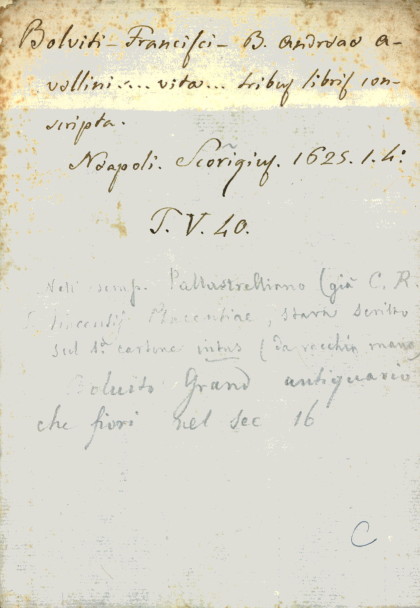 Bolviti - Francisci - B. Andreae a-
vellini.... vita... tribus libris con-
scripta.
Neapoli. Scorigius. 1625. 1. 4:
T. V. 40.
Nell' esemp. Pallastrelliano (già C. R.
S. Vincentij Placentiae, stava scritto
sul 1.° cartone intus (da vecchia mano
Boluito Grand antiquario
che fiorì nel sec 16
C